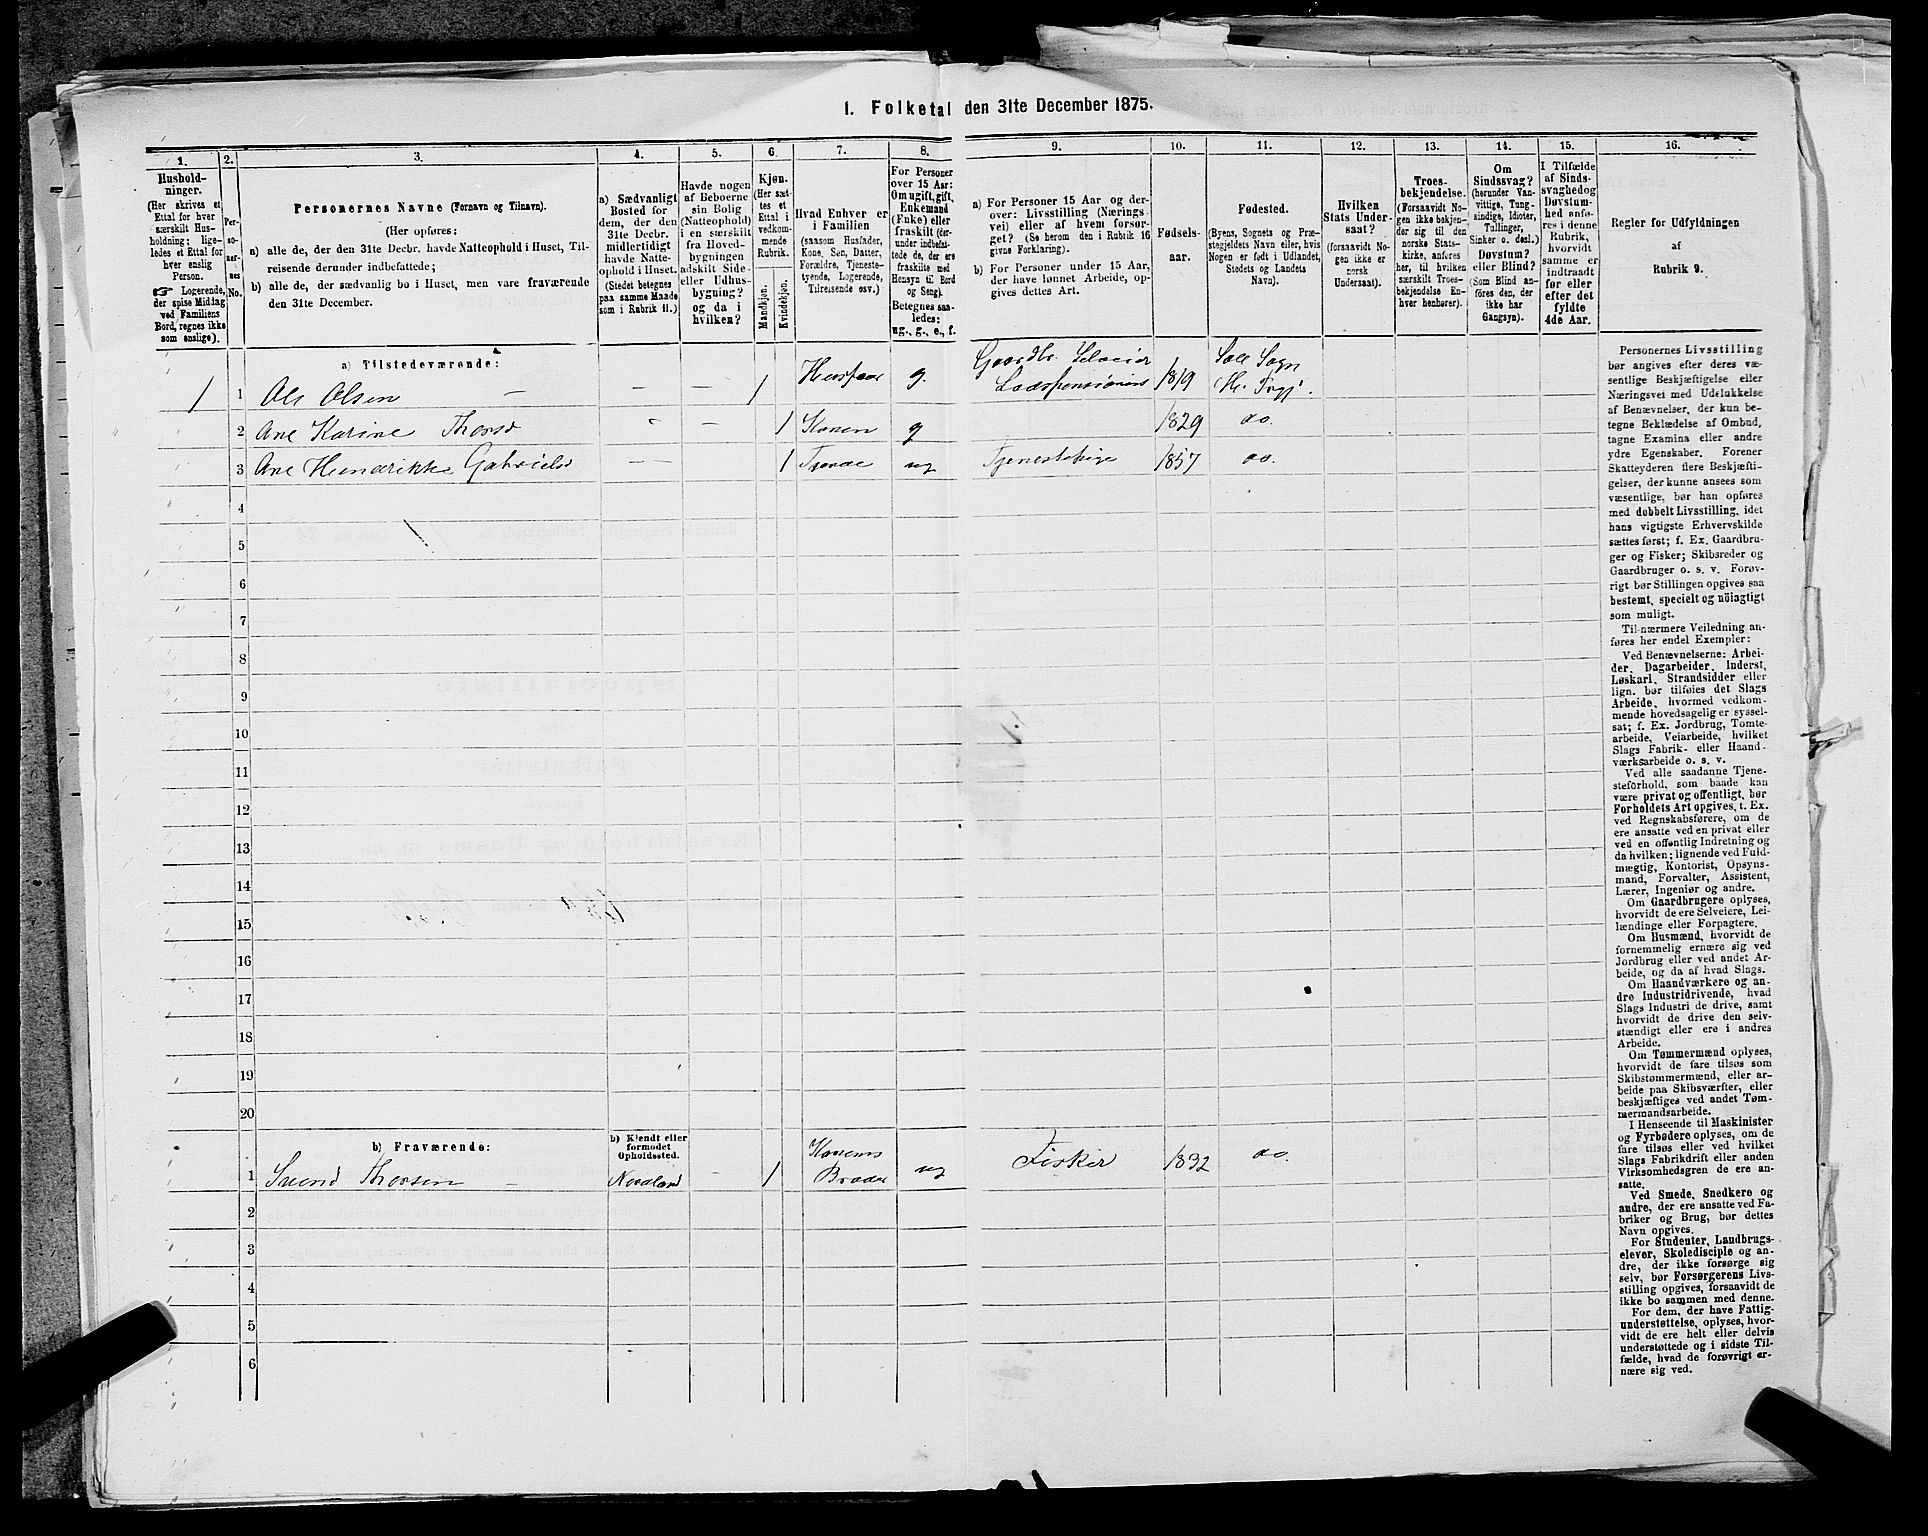 1. Folketal den 31te December 1875.
1.
2.
3.
4.
5.
6.
7.
8.
9.
10.
11.
12.
13.
14.
15.
16.
Hushold-
ninger.
(Her skrives et
Ettal for hver
særskilt Hus-
holdning; lige-
ledes et Ettal for
hver enslig
Person.
☞ Logerende,
der spise Middag
ved Familiens
Bord, regnes ikke
som enslige).
Per-
so-
ner-
nes
No.
Personernes Navne (Fornavn og Tilnavn).
(Her opføres:
a) alle de, der den 31te Decbr. havde Natteophold i Huset, Til-
reisende derunder indbefattede;
b) alle de, der sædvanlig bo i Huset, men vare fraværende
den 31te December.
a) Sædvanligt
Bosted for
dem, der den
31te Decbr.
midlertidigt
havde Natte-
ophold i Huset.
(Stedet betegnes
paa samme Maade
som i Rubrik 11.)
Havde nogen
af Beboerne
sin Bolig
(Natteophold)
i en særskilt
fra Hoved-
bygningen
adskilt Side-
eller Udhus-
bygning?
og da i
hvilken?
Kjøn.
(Her sæt-
tes et
Ettal i
vedkom-
mende
Rubrik.
Mandkjøn.
Kvindekjøn.
Hvad Enhver er
i Familien
(saasom Husfader,
Kone, Søn, Datter,
Forældre, Tjeneste-
tyende, Logerende,
Tilreisende osv.)
For Personer
over 15 Aar:
Om ugift, gift,
Enkemand
(Enke) eller
fraskilt (der-
under indbefat-
tede de, der ere
fraskilte med
Hensyn til Bord
og Seng).
Betegnes saa-
ledes:
ug., g., e., f.
a) For Personer 15 Aar og der-
over: Livsstilling (Nærings-
vei) eller af hvem forsør-
get? (Se herom den i Rubrik 16
givne Forklaring).
b) For Personer under 15 Aar,
der have lønnet Arbeide, op-
gives dettes Art.
Fødsels-
aar.
Fødested.
(Byens, Sognets og Præ-
stegjeldets Navn eller, hvis
Nogen er født i Udlandet,
Stedets og Landets
Navn).
Hvilken
Stats Under-
saat?
(forsaavidt No-
gen ikke er
norsk
Undersaat).
Troes-
bekjendelse.
(Forsaavidt No-
gen ikke bekjen-
der sig til den
norske Stats-
kirke, anføres
her, til hvilken
særskilt Troes-
bekjendelse En-
hver henhører).
Om
Sindssvag?
(herunder Van-
vittige, Tung-
sindige, Idioter,
Tullinger,
Sinker o. desl.)
Døvstum?
eller Blind?
(Som Blind an-
føres den, der
ikke har
Gangsyn).
I Tilfælde
af Sinds-
svaghed og
Døvstum-
hed anfø-
res i denne
Rubrik,
hvorvidt
samme er
indtraadt
før eller
efter det
fyldte
4de Aar.
Regler for Udfyldningen
af
Rubrik 9.
a) Tilstedeværende:
1 1 Ole Olsen — — — 1 Husfader g. Gaardbr. Selveier 1819 Sole Sogn
2 Ane Karine Thorsd 1 Konen g 1829 do.
3 Ane Hendrikke Gabrielsd — 1 Tjener ug Tjenestepige 1857 do.
4
5
6
7
8
9
10
11
12
13
14
15
16
17
18
19
20
b) Fraværende:
b) Kjendt eller
formodet
Opholdssted.
1 Svend Thorsen — Nordland — 1 Konens Broder ug Fisker 1832 do.
2
3
4
5
6
Personernes Livsstilling
bør angives efter deres væ-
sentlige Beskjæftigelse eller
Næringsvei med Udelukkelse
af Benævnelser, der kun be-
tegne Beklædelse af Ombud,
tagne Examina eller andre
ydre Egenskaber. Forener
Skatteyderen flere Beskjæfti-
gelser, der kunne ansees som
væsentlige, bør han opføres
med dobbelt Livsstilling, idet
hans vigtigste Erhvervskilde
sættes først; f. Ex. Gaardbru-
ger og Fisker; Skibsreder og
Gaardbruger o. s. v. Forøv-
rigt bør Stillingen opgives saa
bestemt, specielt og nöiagtigt
som muligt.
Til nærmere Veiledning an-
føres her endel Exempler:
Ved Benævnelserne: Arbei-
der, Dagarbeider, Inderst,
Løskarl, Strandsidder eller
lign. bør tilføies det Slags
Arbeide, hvormed vedkom-
mende hovedsagelig er syssel-
sat; f. Ex. Jordbrug, Tomte-
arbeide, Veiarbeide, hvilket
Slags Fabrik- eller Haand-
værksarbeide o. s. v.
Ved alle saadanne Tjene-
steforhold, som baade kan
være privat og offentligt, bør
Forholdets Art opgives, t. Ex.
ved Regnskabsførere, om de
ere ansatte ved en privat eller
ved en offentlig Indretning og
da hvilken; lignende ved Fuld-
mægtig, Kontorist, Opsyns-
mand, Forvalter, Assistent,
Lærer, Ingeniør og andre.
Om Gaardbrugere oplyses,
hvorvidt de ere Selveiere, Lei-
lændinge eller Forpagtere.
Om Husmænd, hvorvidt de
fornemmelig ernære sig ved
Jordbrug eller ved andet Ar-
beide, og da af hvad Slags.
Om Haandværkere og an-
dre Industridrivende, hvad
Slags Industri de drive, samt
hvorvidt de drive den selv-
stændigt eller ere i andres
Arbeide.
Om Tømmermænd oplyses,
hvorvidt de fare tilsøs som
Skibstømmermænd, eller ar-
beide paa Skibsværfter, eller
beskjæftiges ved andet Tøm-
mermandsarbeide.
I Henseende til Maskinister
og Fyrbødere oplyses, om de
fare tilsøs eller ved hvilket
Slags Fabrikdrift eller anden
Virksomhedsgren de ere an-
satte.
Ved Smede, Snedkere og
andre, der ere ansatte ved Fa-
briker og Brug, bør dettes
Navn opgives.
For Studenter, Landbrugs-
elever, Skoledisciple og an-
dre, der ikke forsørge sig
selv, bør Forsørgerens Livs-
stilling opgives, forsaavidt de
ikke bo sammen med denne.
For dem, der have Fattig-
understøttelse, oplyses, hvor-
vidt de ere helt eller delvis
understøttede og i sidste Til-
fælde, hvad de forøvrigt er-
nære sig ved.